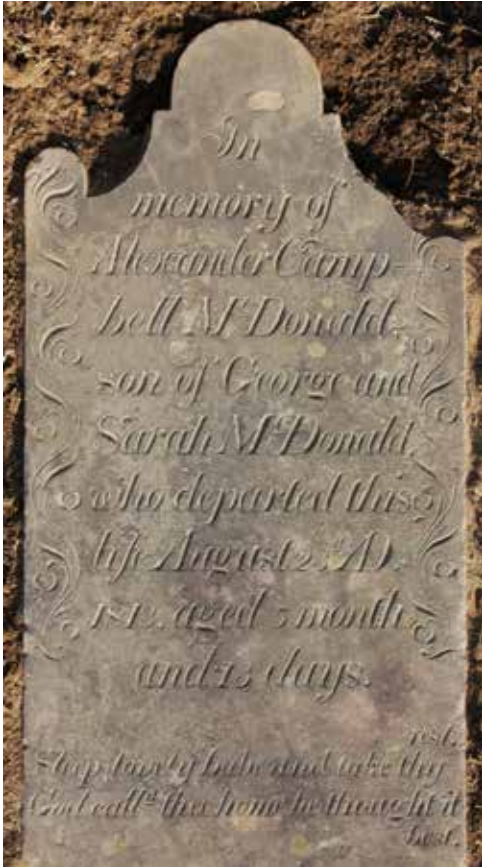 In
memory of
Alexander Camp-
bell McDonald,
son of George and
Sarah McDonald,
who departed this
life August AD.
aged month
and days.
rest,
Sleep lovely babe and take thy
God calld thee home he thought it
best.